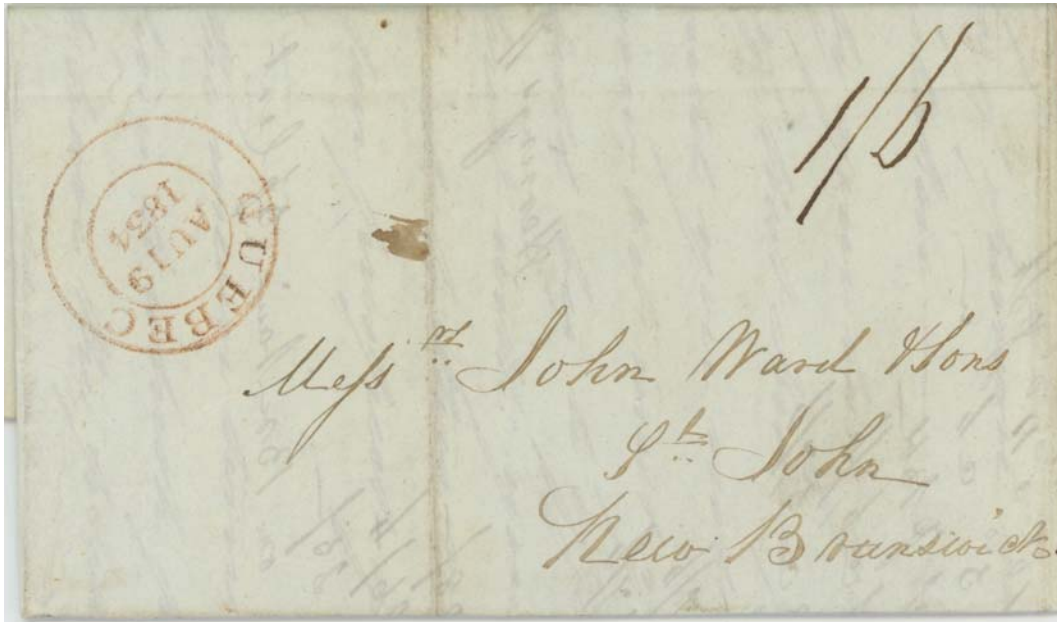 1/6
QUEBEC
AU 19
1834
Mess.rs John Ward & Sons
St. John
New Brunswick.